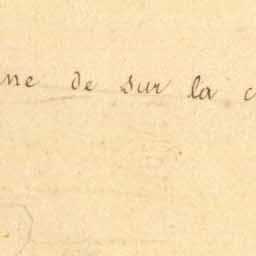 ne de sur la c